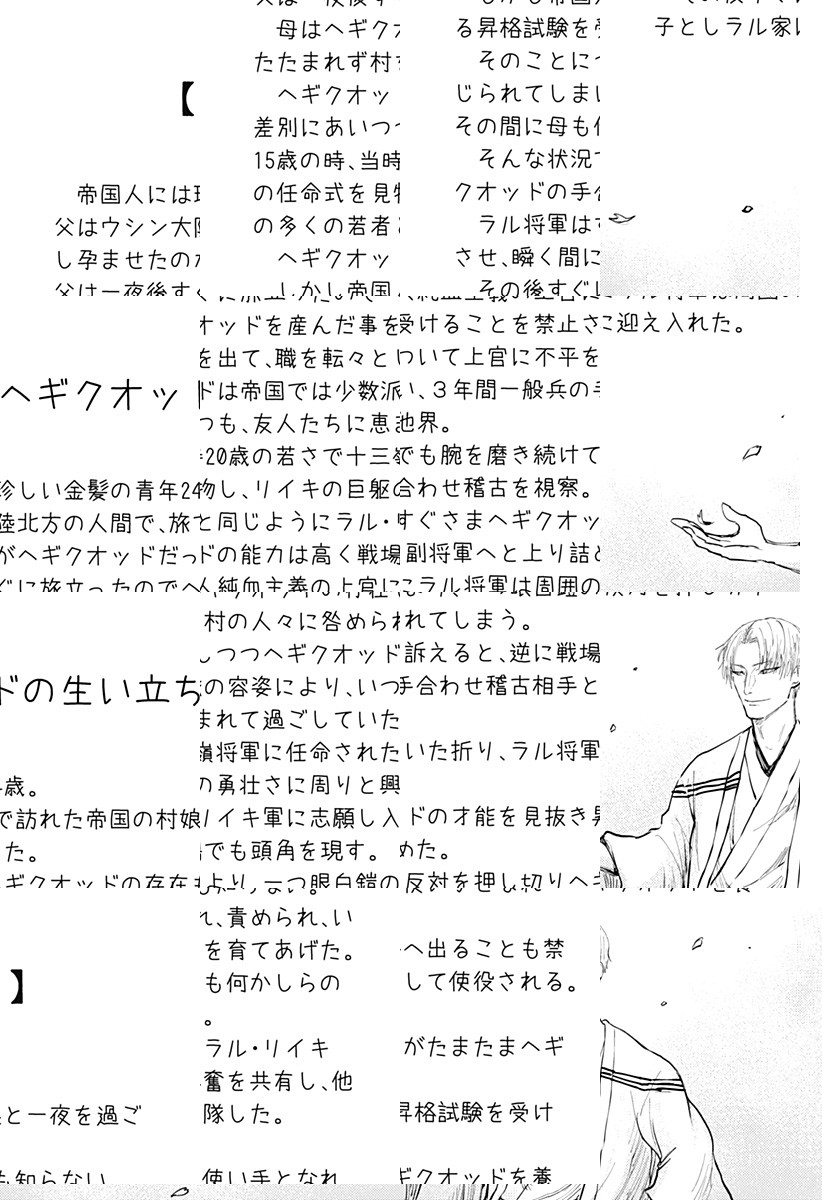 母はヘギク る昇格試験を 子としラル家
たたまれず村 そのことに
【 ヘギクオッ じられてしまい
差別にあいつ その間に母も
15歳の時、当時 そんな状況
帝国人には の任命式を見 クオッドの手
父はウシン大 の多くの若者 ラル将軍は
し孕ませたの ヘギクオッ させ、瞬く間に
父は一夜後す しかし帝国 その後すぐ
オッドを産んだ事を受けることを禁止さ に迎え入れた。
を出て、職を転々と いて上官に不平を
ヘギクオッ ドは帝国では少数派い、3年間一般兵の
つも、友人たちに恵 界。
20歳の若さで十三 でも腕を磨き続けて
珍しい金髪の青年24 物し、リイキの巨躯 合わせ稽古を視察。
陸北方の人間で、旅 と同じようにラル・ すぐさまヘギクオッ
がヘギクオッドだっ ドの能力は高く戦場 副将軍へと上り詰
ぐに旅立ったのでヘ 純血主義の上官に ラル将軍は周囲の
村の人々に咎めら れてしまう。
しつつヘギクオッド 訴えると、逆に戦場
ドの生い立ち の容姿により、いつ 手合わせ稽古相手と
まれて過ごしていた
将軍に任命された いた折り、ラル将軍
歳。 の勇壮さに周りと興
で訪れた帝国の村娘 リイキ軍に志願し入 ドの才能を見抜き
た。 でも頭角を現す。 めた。
ギクオッドの存在 より、一つ眼白鎧の 反対を押し切りヘギ
れ、責められ、い
を育てあげた。 へ出ることも禁
】 も何かしらの して使役される。
。
ラル・リイキ がたまたまヘギ
奮を共有し、他
と一夜を過ご 隊した。 昇格試験を受け
も知らない 使い手となれ ギクオッドを養